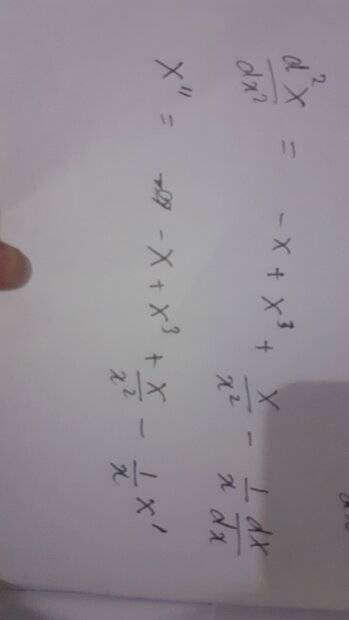 d²X/dx² = -X + X³ + X/x² - 1/x dX/dx
X'' = -X + X³ + X/x² - 1/x X'